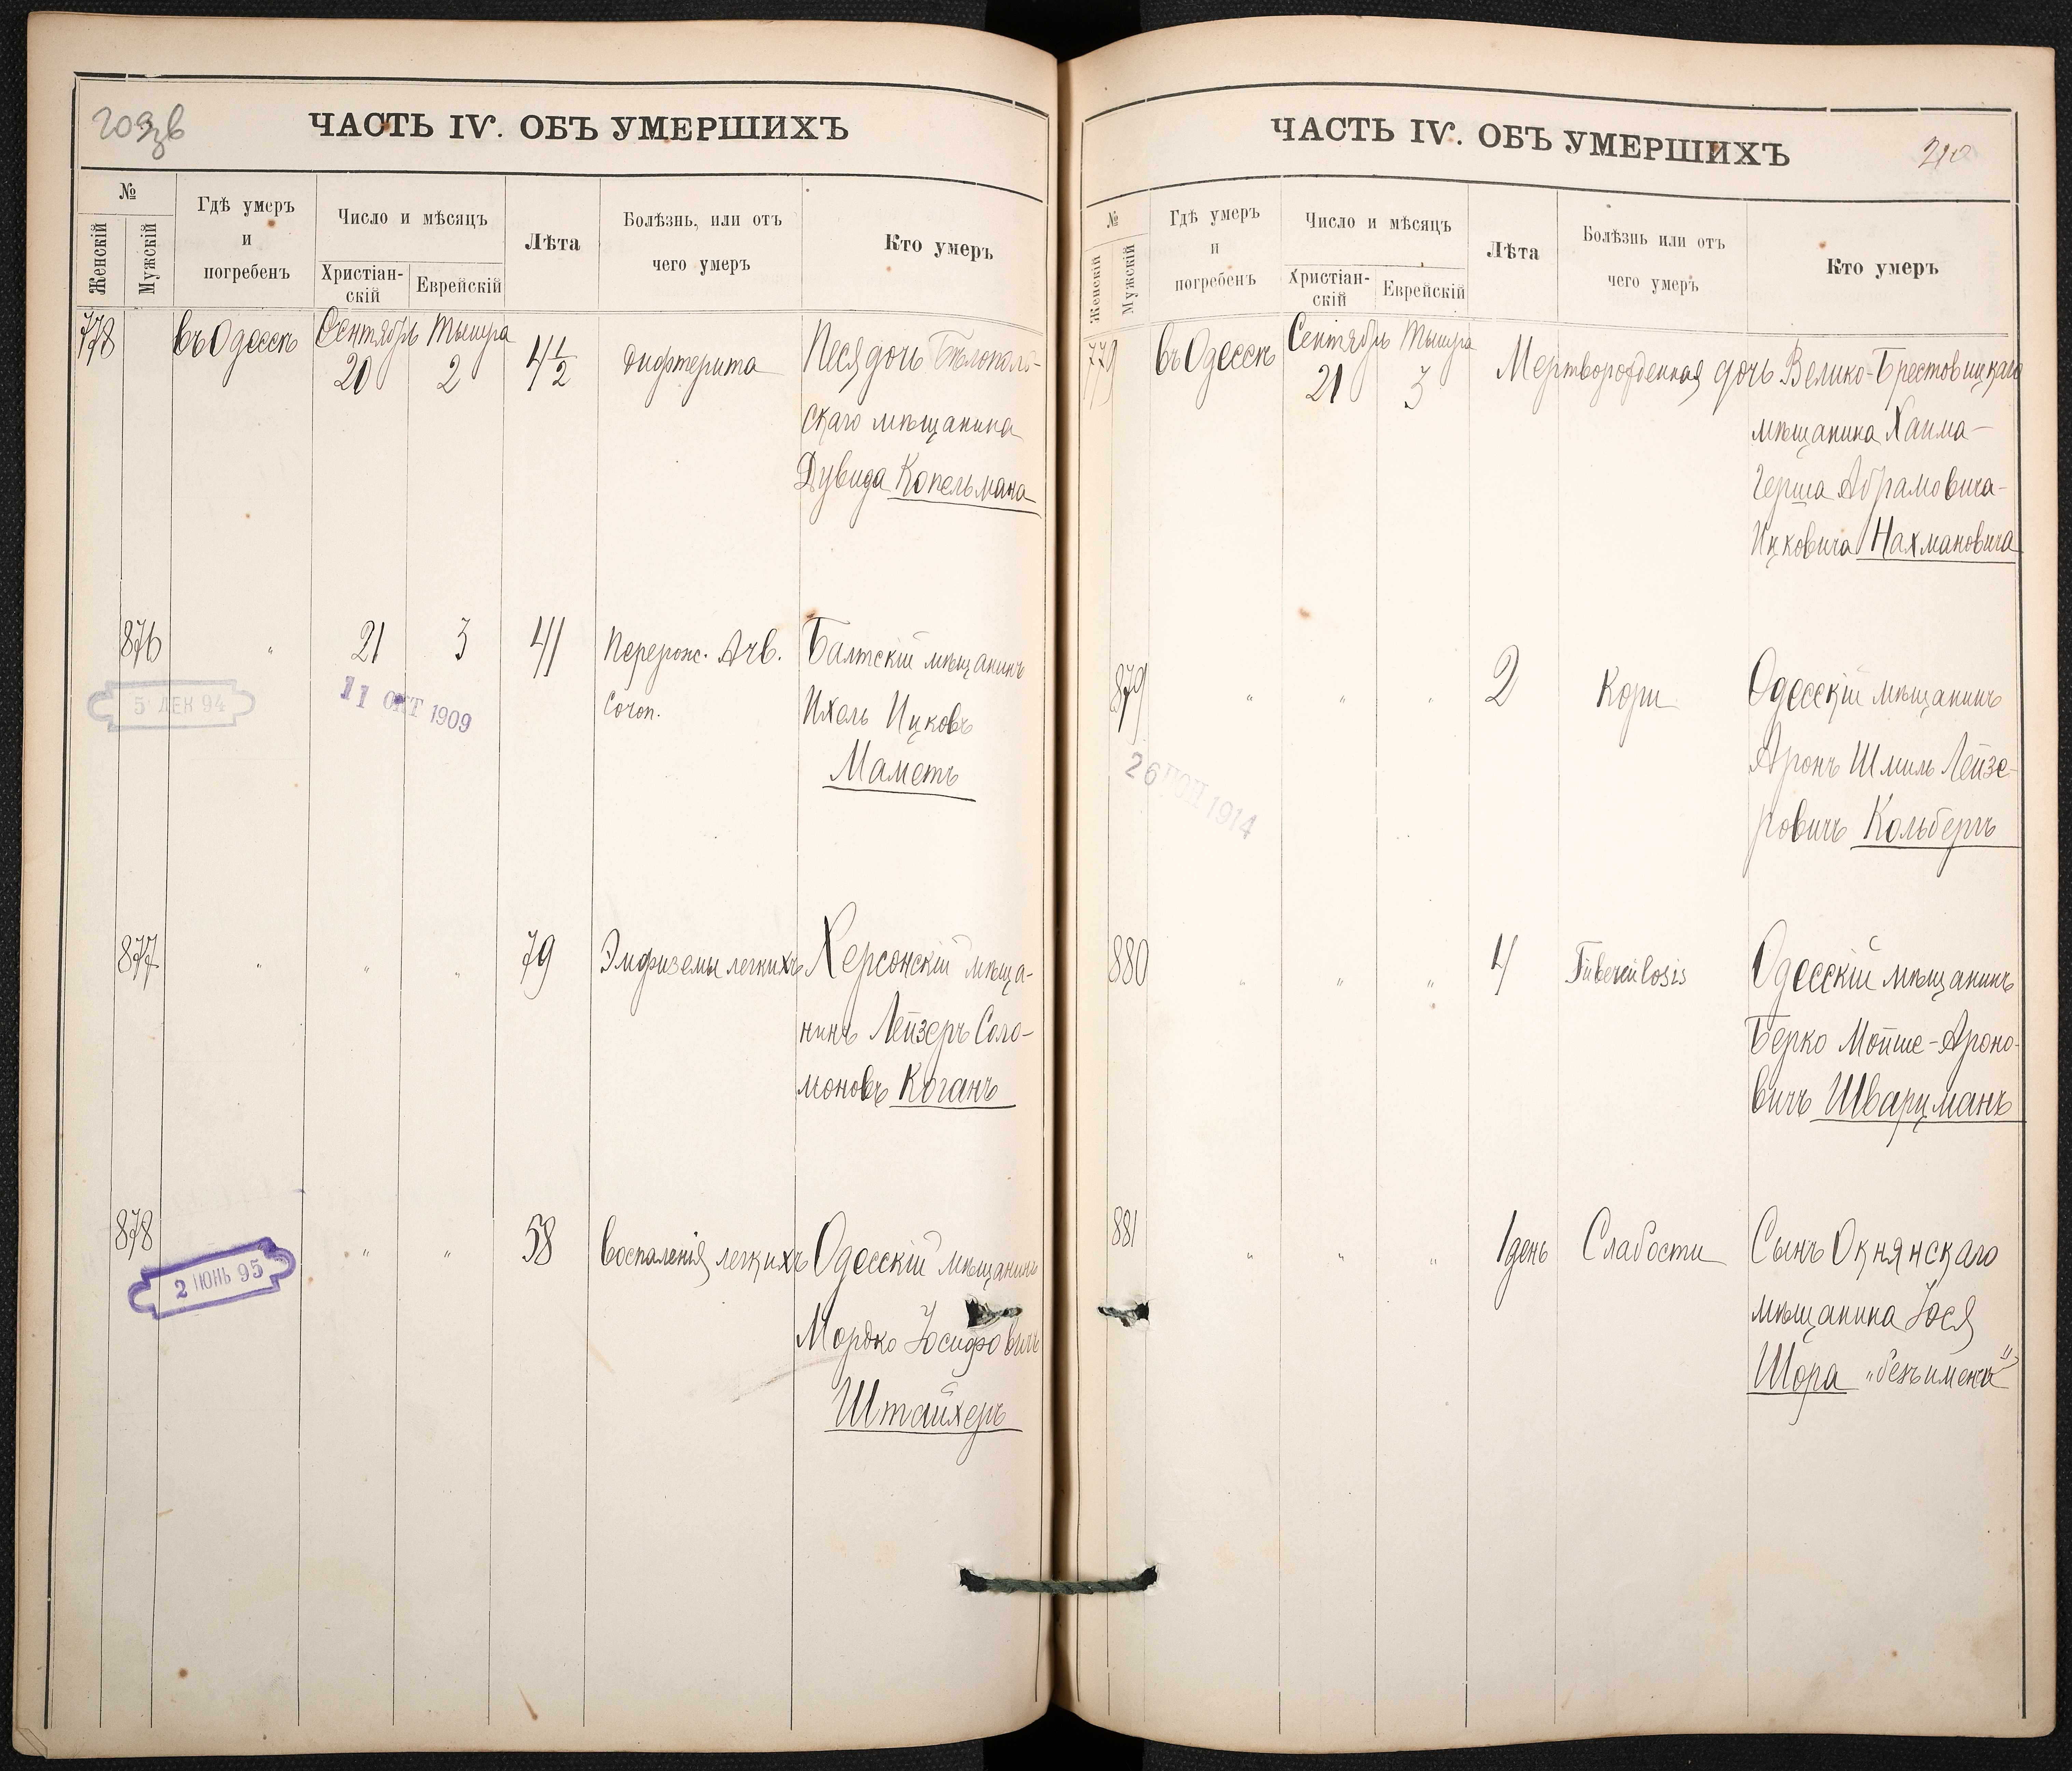 ЧАСТЬ IV. ОБЪ УМЕРШИХЪ
№
Женскій
Мужскій
Гдѣ умеръ
и
погребенъ
Число и мѣсяцъ
Христіан-
скій
Еврейскій
Лѣта
Болѣзнь, или отъ
чего умеръ
Кто умеръ
778 въ Одессѣ Сентябрь 20 Тышра 2 4 1/2 Дифтерита Песя дочь Бѣлополь-
скаго мѣщанина
Дувида Копельмана
876 " 21 3 41 Перерож. Балтскій мѣщанинъ
Ихель Ицковъ
Маметъ
5 ДЕК 94
11 ОКТ 1909
877 " " " 79 Эмфиземы легкихъ Херсонскій мѣща-
нинъ Лейзеръ Соло-
моновъ Коганъ
878 " " 58 Воспаленія легкихъ Одесскій мѣщанинъ
Мордко Іосифовичъ
Штайхеръ
2 ІЮНЬ 95
ЧАСТЬ IV. ОБЪ УМЕРШИХЪ
210
№
Женскій
Мужскій
Гдѣ умеръ
и
погребенъ
Число и мѣсяцъ
Христіан-
скій
Еврейскій
Лѣта
Болѣзнь или отъ
чего умеръ
Кто умеръ
779 въ Одессѣ Сентябрь 21 Тышра 3 Мертворожденная дочь Велико-Брестовицкаго
мѣщанина Хаима-
Герша Абрамовича-
Ицковича Нахмановича
879 " " " 2 Кори Одесскій мѣщанинъ
Аронъ Шмиль Лейзе-
ровичъ Кольбергъ
26 1914
880 " " " 4 Tuberculosis Одесскій мѣщанинъ
Берко Мойше-Ароно-
вичъ Шварцманъ
881 " " " 1 день Слабости Сынъ Окнянскаго
мѣщанина Іося
Шора „безъ имени"